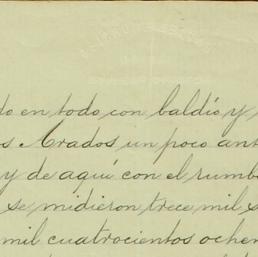 do en todo con baldío y
s Arados un poco ant
y de aquí con el rumb
se midieron trece mil s
mil cuatrocientos ochen